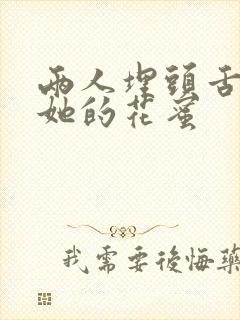 兩人埋頭舌
她的花蜜
我需要後悔藥